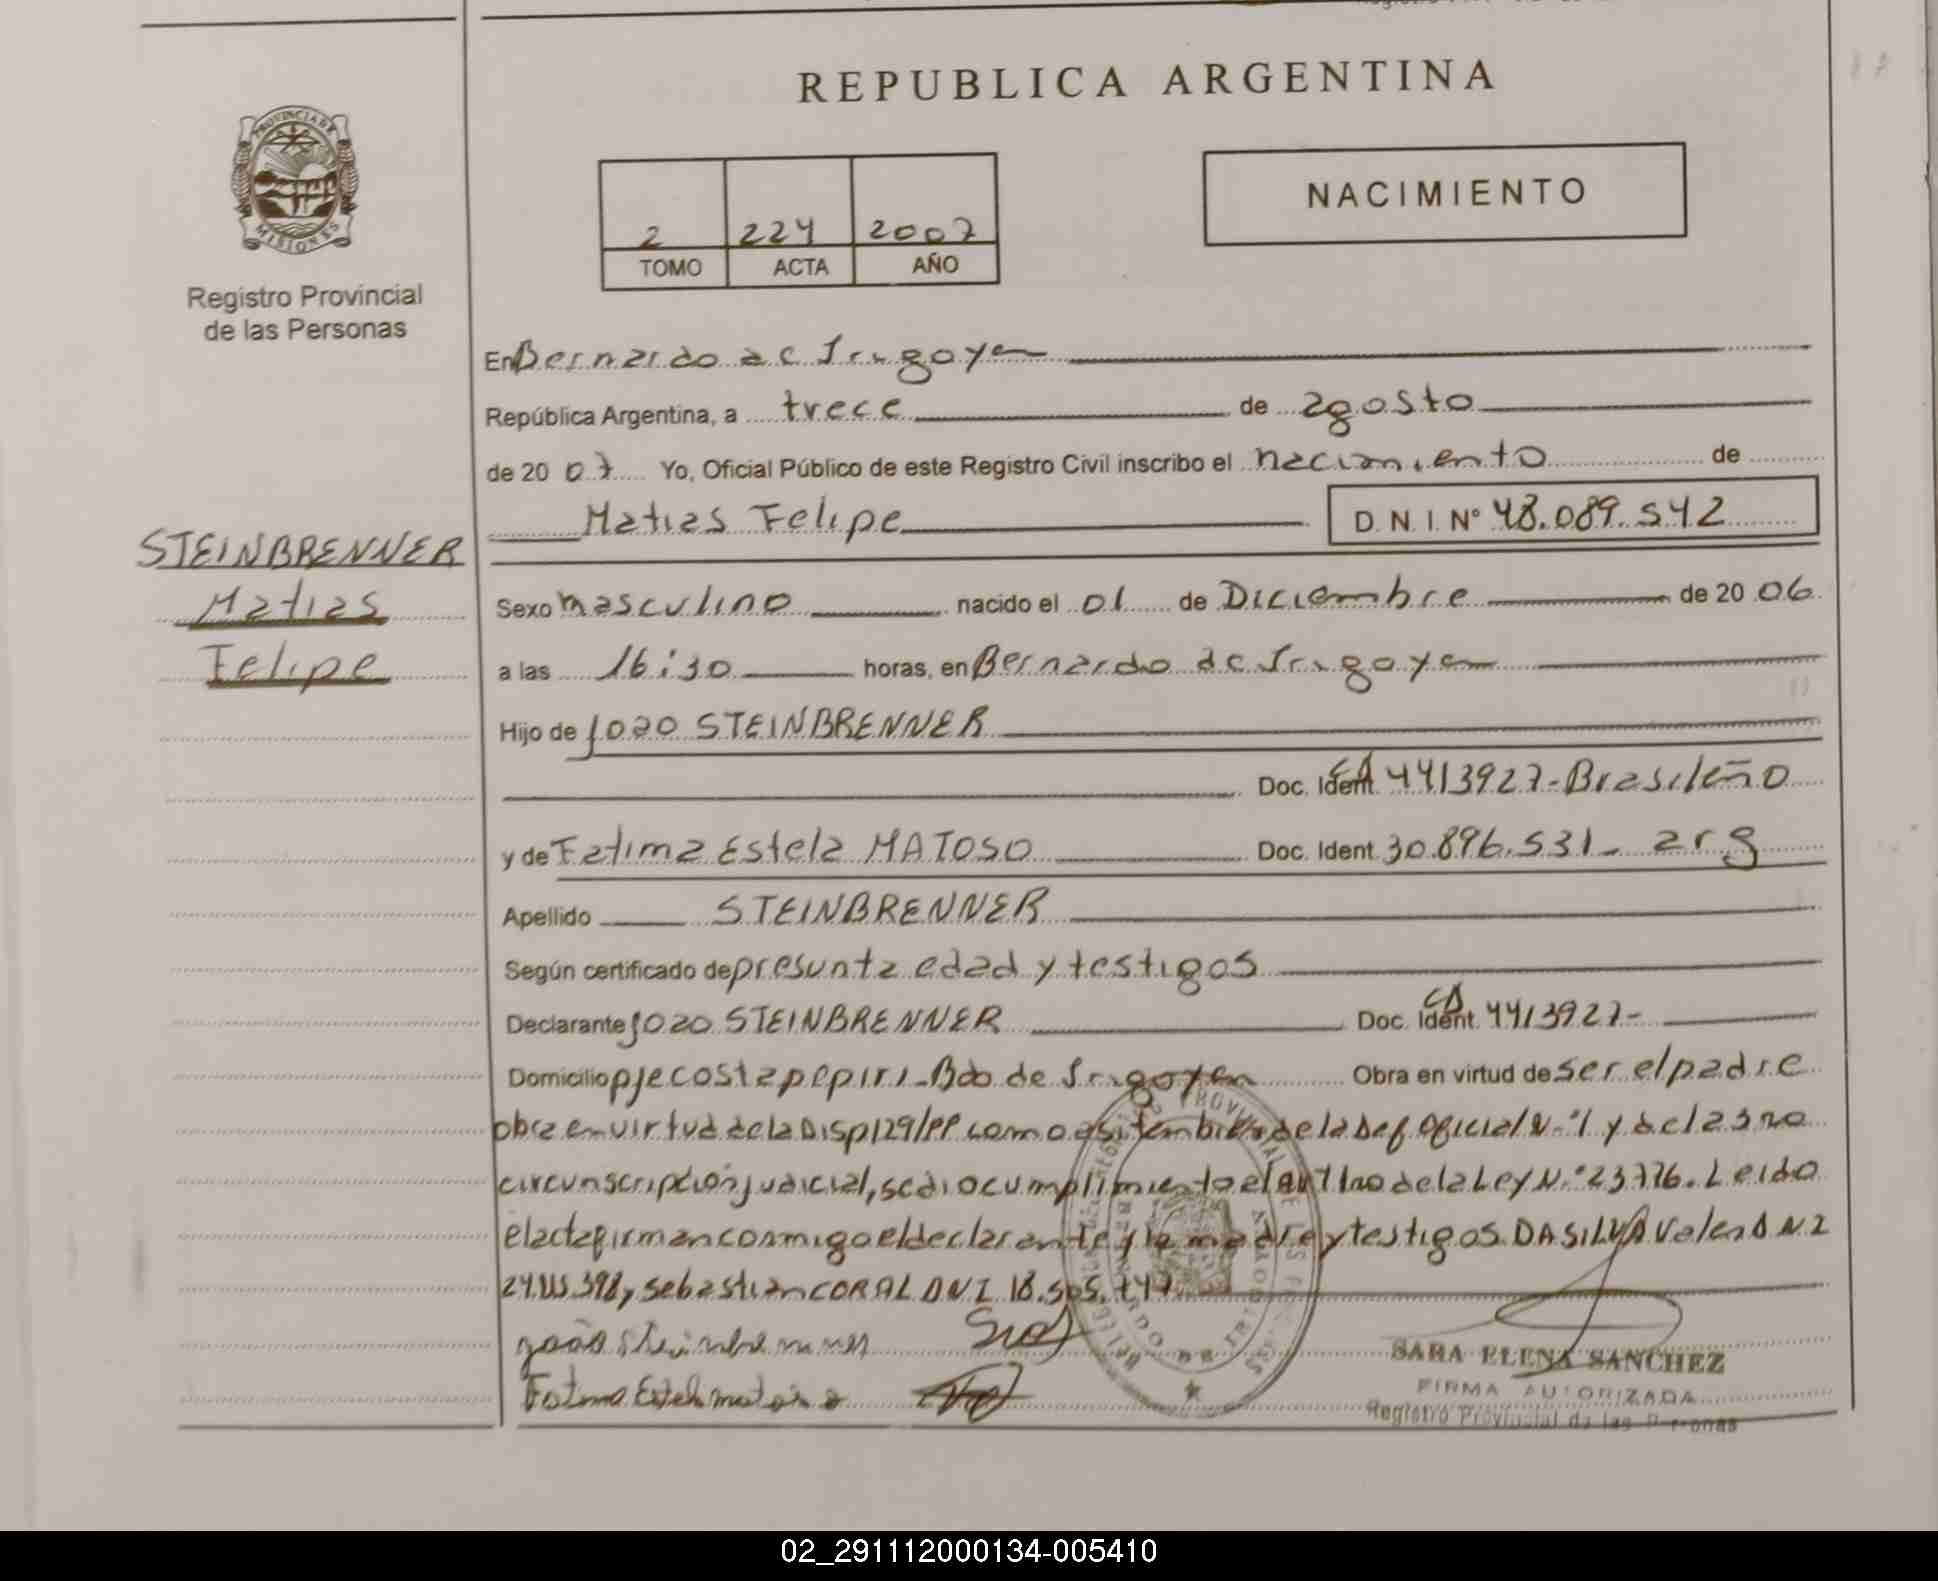 REPUBLICA ARGENTINA
PROVINCIA DE
MISIONES
Registro Provincial
de las Personas
NACIMIENTO
2 224 2007
TOMO ACTA AÑO
En Bernardo de Irigoyen
República Argentina, a trece de agosto
de 2007 Yo, Oficial Público de este Registro Civil inscribo el nacimiento de
Matias Felipe D.N.I. Nº 48.089.542
STEINBRENNER
Matias
Felipe
Sexo masculino nacido el 01 de Diciembre de 2006
a las 16:30 horas, en Bernardo de Irigoyen
Hijo de Joao STEINBRENNER
Doc. Ident. CI 4413927-Brasileño
y de Fatima Estela MATOSO Doc. Ident. 30.896.531- arg
Apellido STEINBRENNER
Según certificado de presunta edad y testigos
Declarante Joao STEINBRENNER Doc. Ident. CI 4413927-
Domicilio pje costa pepiri-Bdo de Irigoyen Obra en virtud de ser el padre
obra en virtud de la Disp 129/ como asi tambien de la Def oficial N.º1 y de la 3ra
circunscripción judicial, se dio cumplimiento el art 1ro de la Ley N.º 23.776. Leido
el acta firman conmigo el declarante y la madre y testigos DA SILVA DNI
398, sebastian CORAL DNI 18.505.
João Steinbrenner
Fatima Estela matoso
SARA ELENA SANCHEZ
FIRMA AUTORIZADA
Registro Provincial de las Personas
02_291112000134-005410